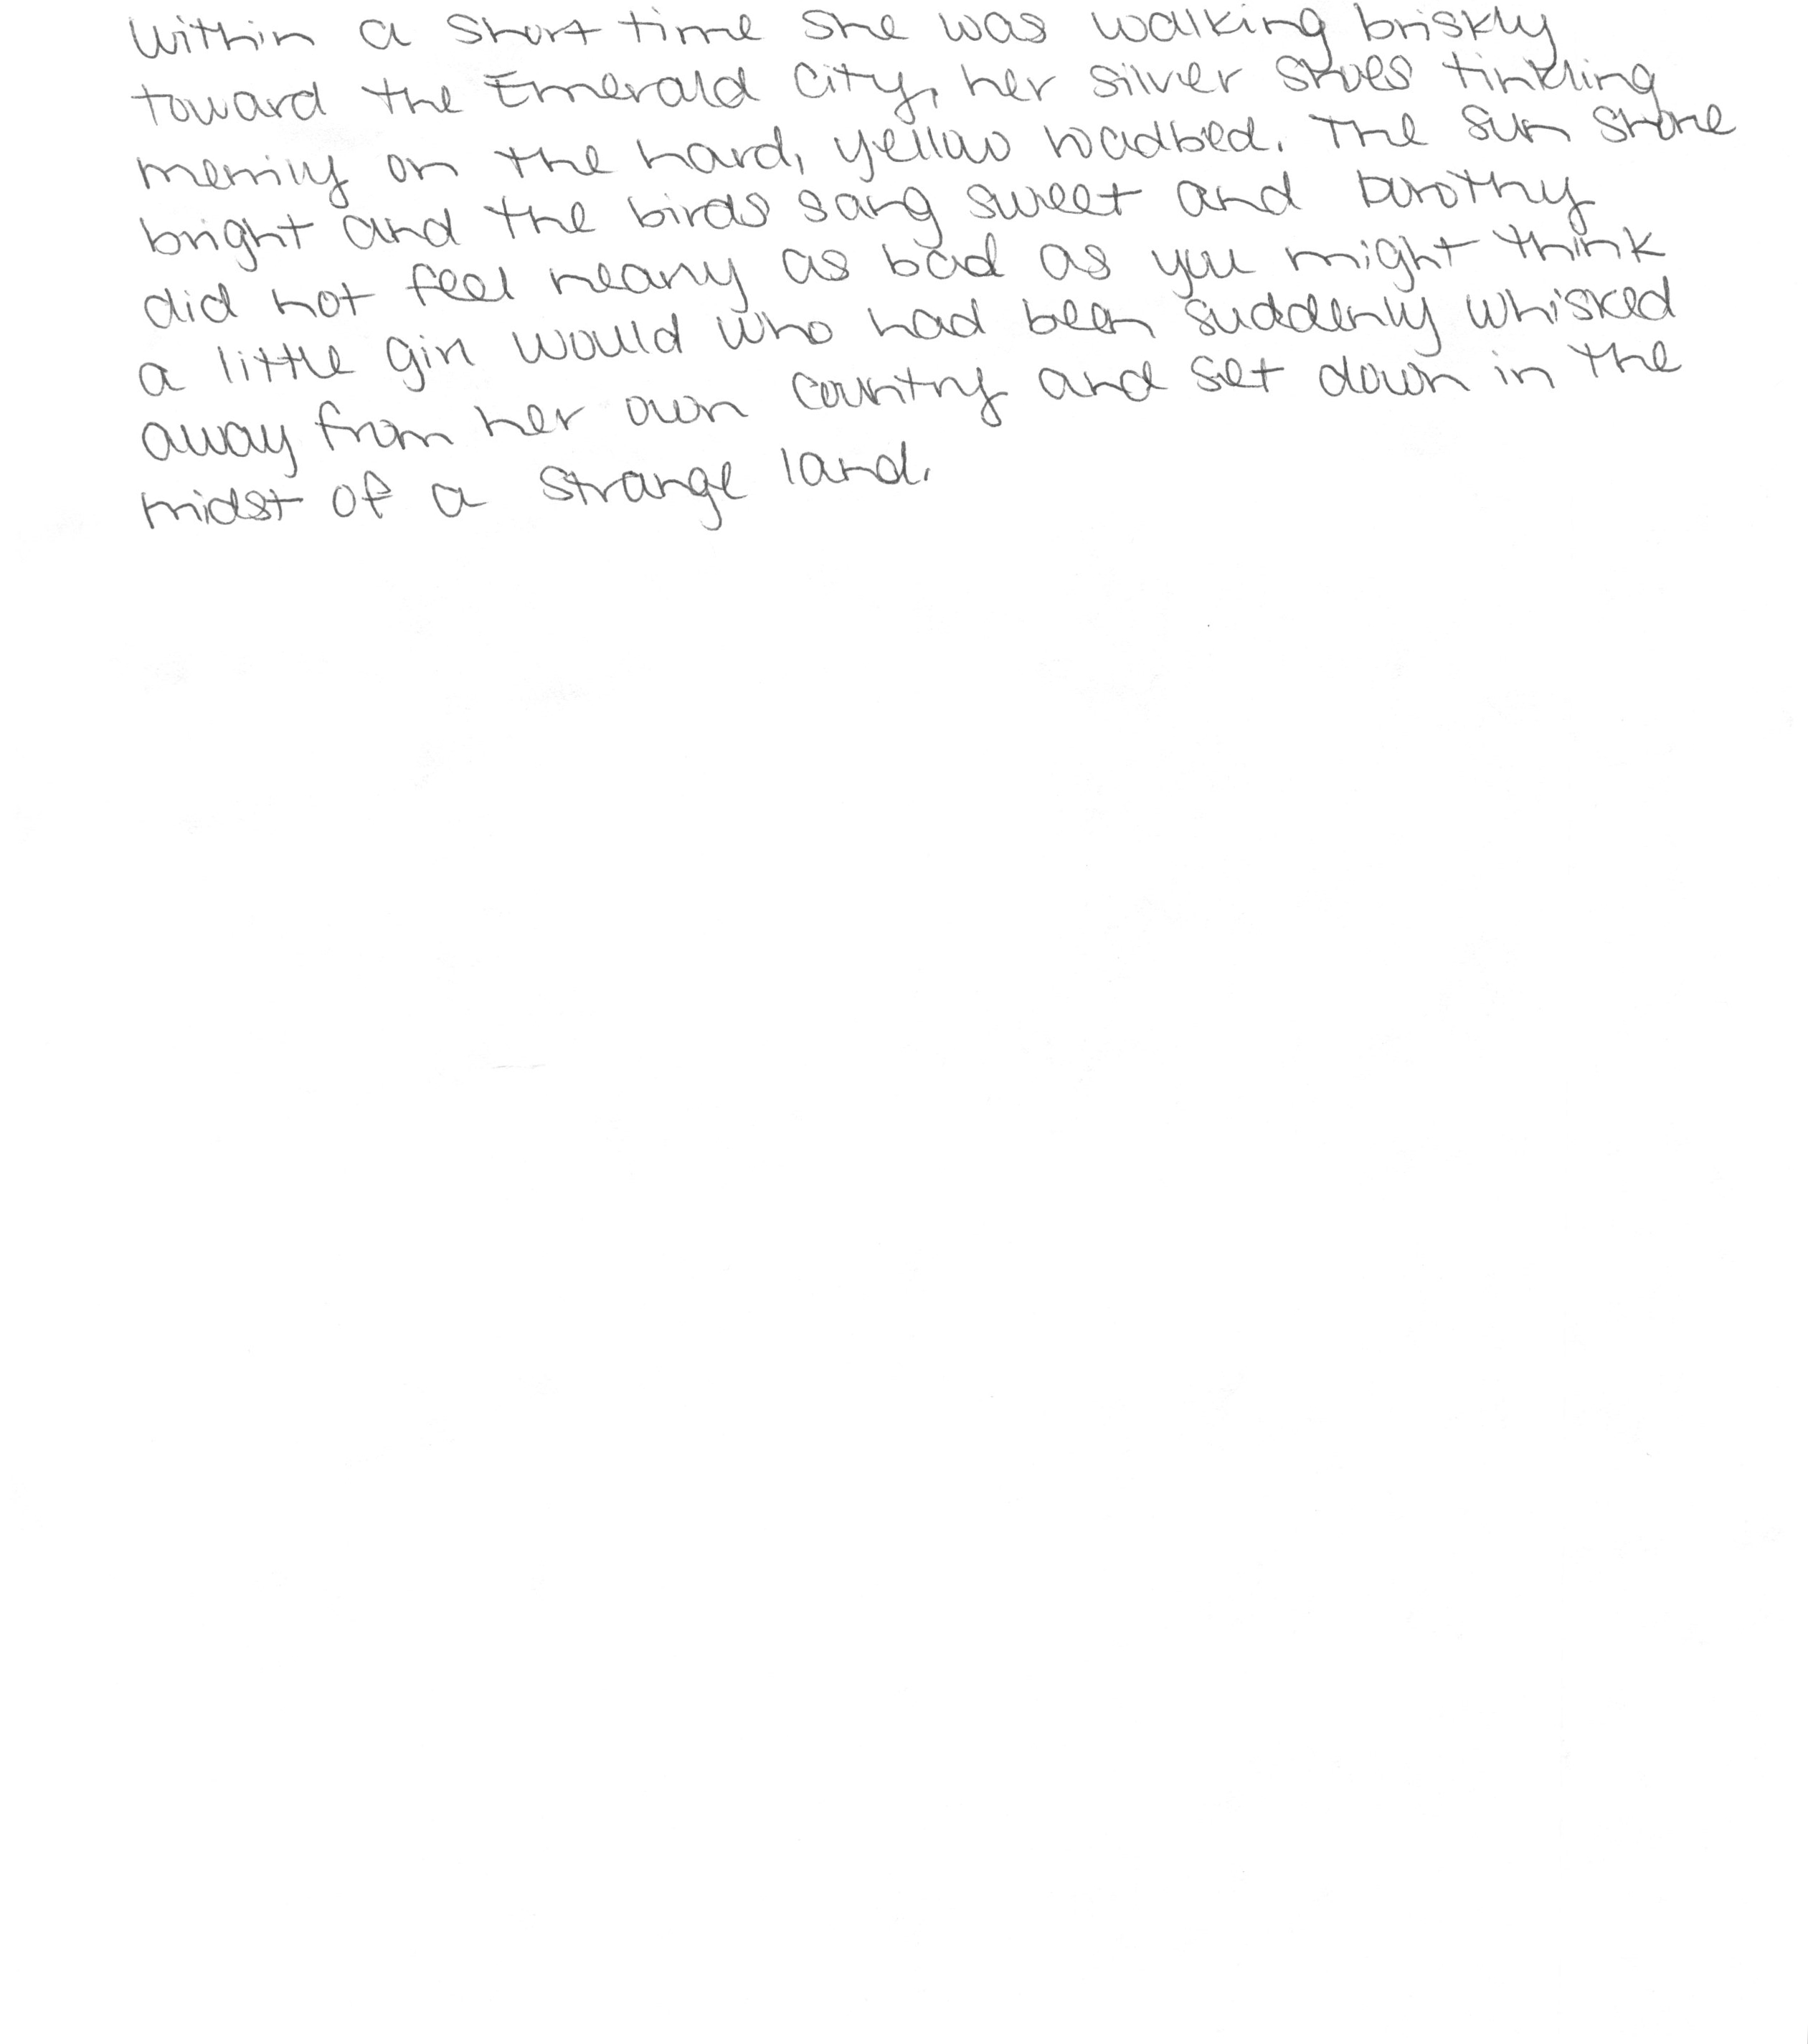 Within a short time she was walking briskly
toward the Emerald City, her silver shoes tinkling
merrily on the hard, yellow roadbed. The sun shone
bright and the birds sang sweet and Dorothy
did not feel nearly as bad as you might think
a little girl would who had been suddenly whisked
away from her own country and set down in the
midst of a strange land.